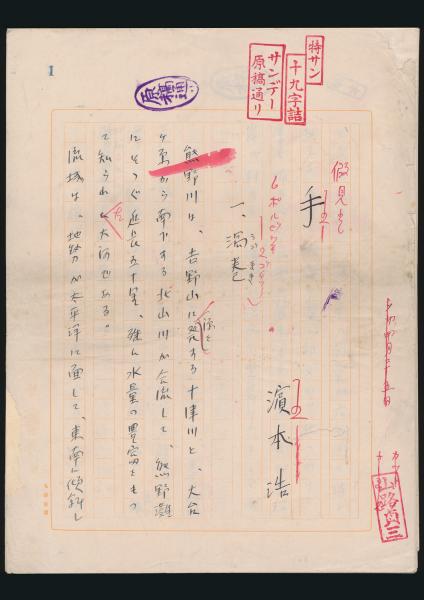 特サン
十九字詰
サンデー
原稿通り
原稿通
1
假見出
手
6ポルビ
濱本浩
一、渦巻
うずまき
熊野川は、吉野山に発する十津川と、大台
源を
ヶ原から南下する北山川が合流して、熊野灘
にそゝぐ延長五十里、殊に水量の豊富をもつ
て知られた大河である。
流域は、地勢が太平洋に面して、東南に傾斜し
カット